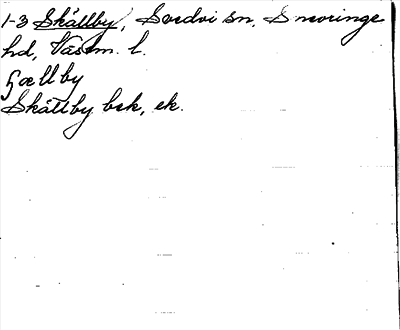 1-3 Skällby, Svedvi sn, Snevringe
hd, Västm. l.
hællby
Skällby bek, ek.